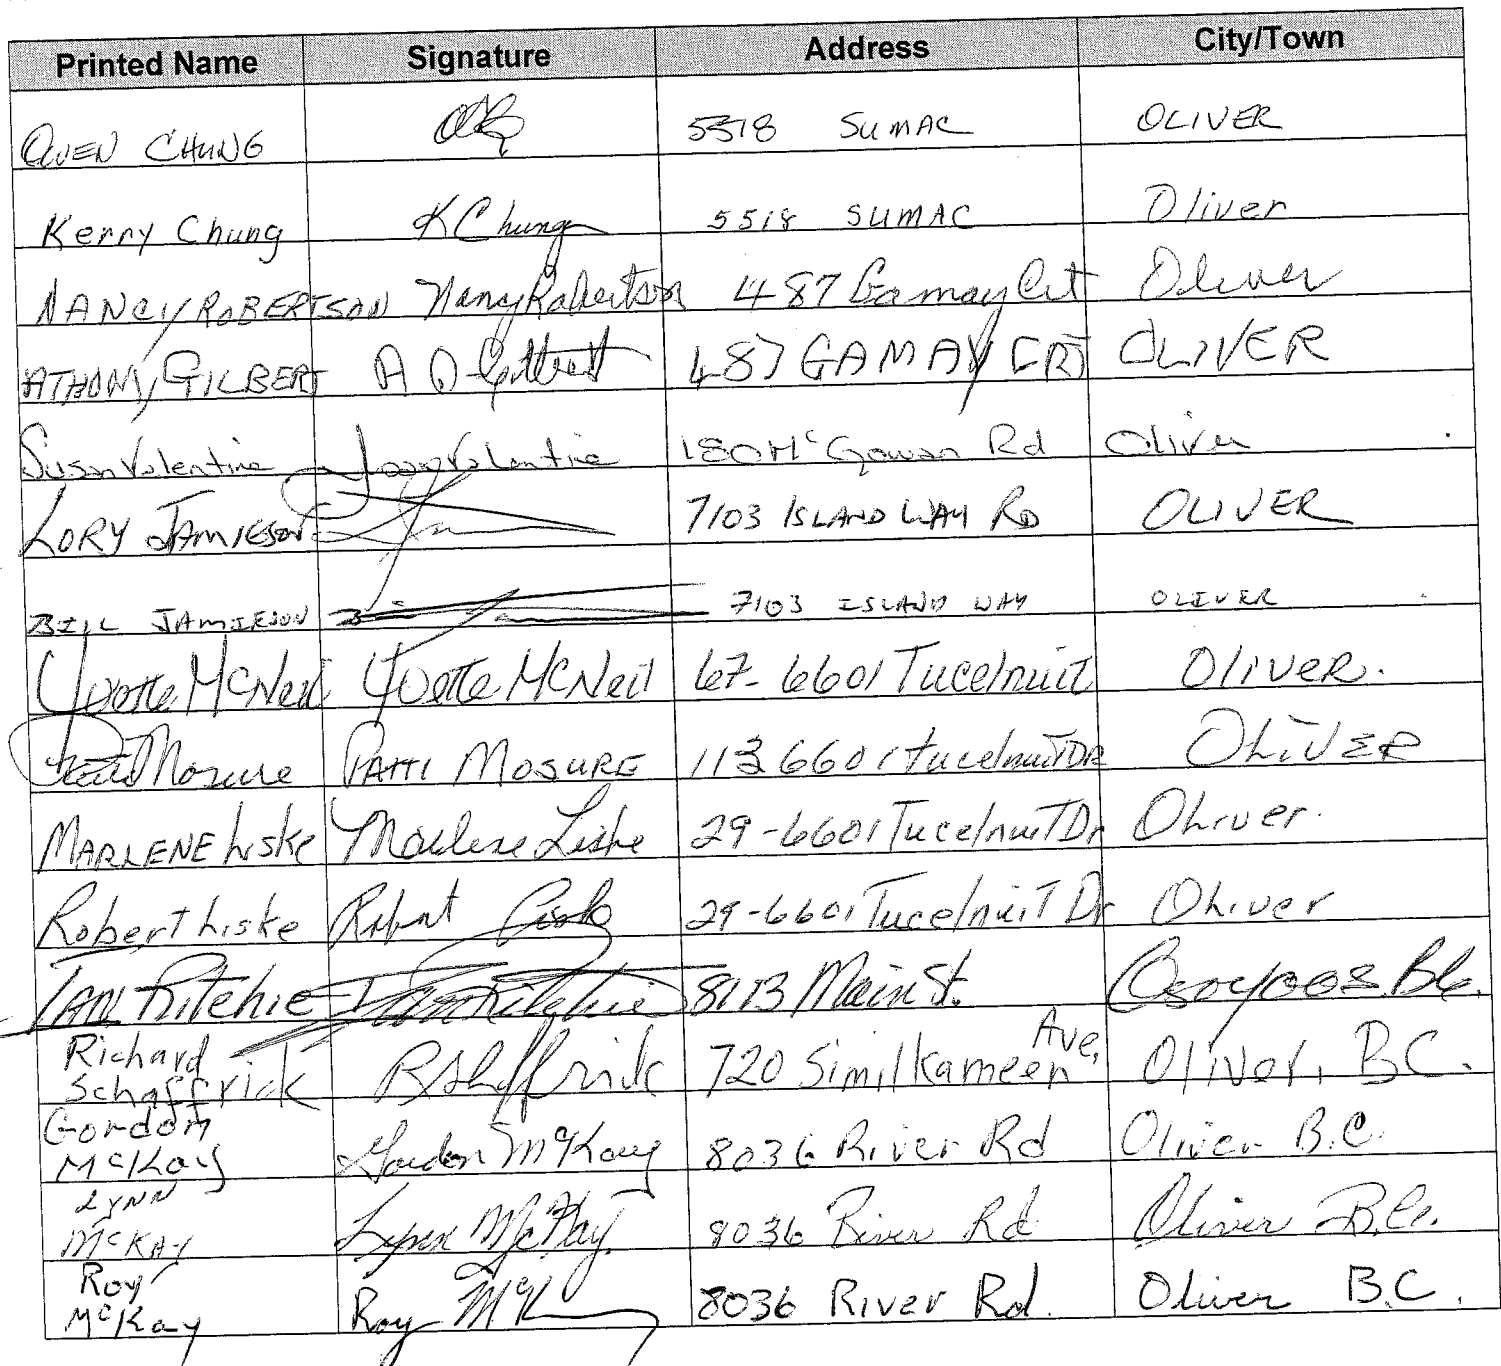 Printed Name Signature Address City/Town
OWEN CHUNG 5518 SUMAC OLIVER
Kerry Chung KChung 5518 SUMAC Oliver
NANCY ROBERTSON Nancy Robertson 487 Gamay Crt Oliver
ATHONY GILBERT A D Gilbert 487 GAMAY CRT OLIVER
Susan Valentine Susan Valentine 180 McGowan Rd Oliver
LORY JAMIESON 7103 ISLAND WAY RD OLIVER
BILL JAMIESON 7103 ISLAND WAY OLIVER
Yvotte McNeil Yvotte McNeil 67-6601 Tucelnuit OLIVER.
Patti Mosure PATTI MOSURE 113 6601 tucelnuit DR OLIVER
MARLENE Liske Marlene Liske 29-6601 Tucelnuit Dr Oliver.
Robert Liske Robert 29-6601 Tucelnuit Dr Oliver
IAN Ritchie Ian Ritchie 8113 Main St. Osoyoos BC.
Richard
Schaffrick RSchaffrick 720 Similkameen Ave, Oliver, B.C.
Gordon
McKay Gordon McKay 8036 River Rd Oliver B.C.
LYNN
McKAY Lynn McKay 8036 River Rd Oliver B.C.
Roy
McKay Roy McK 8036 River Rd. Oliver B.C.